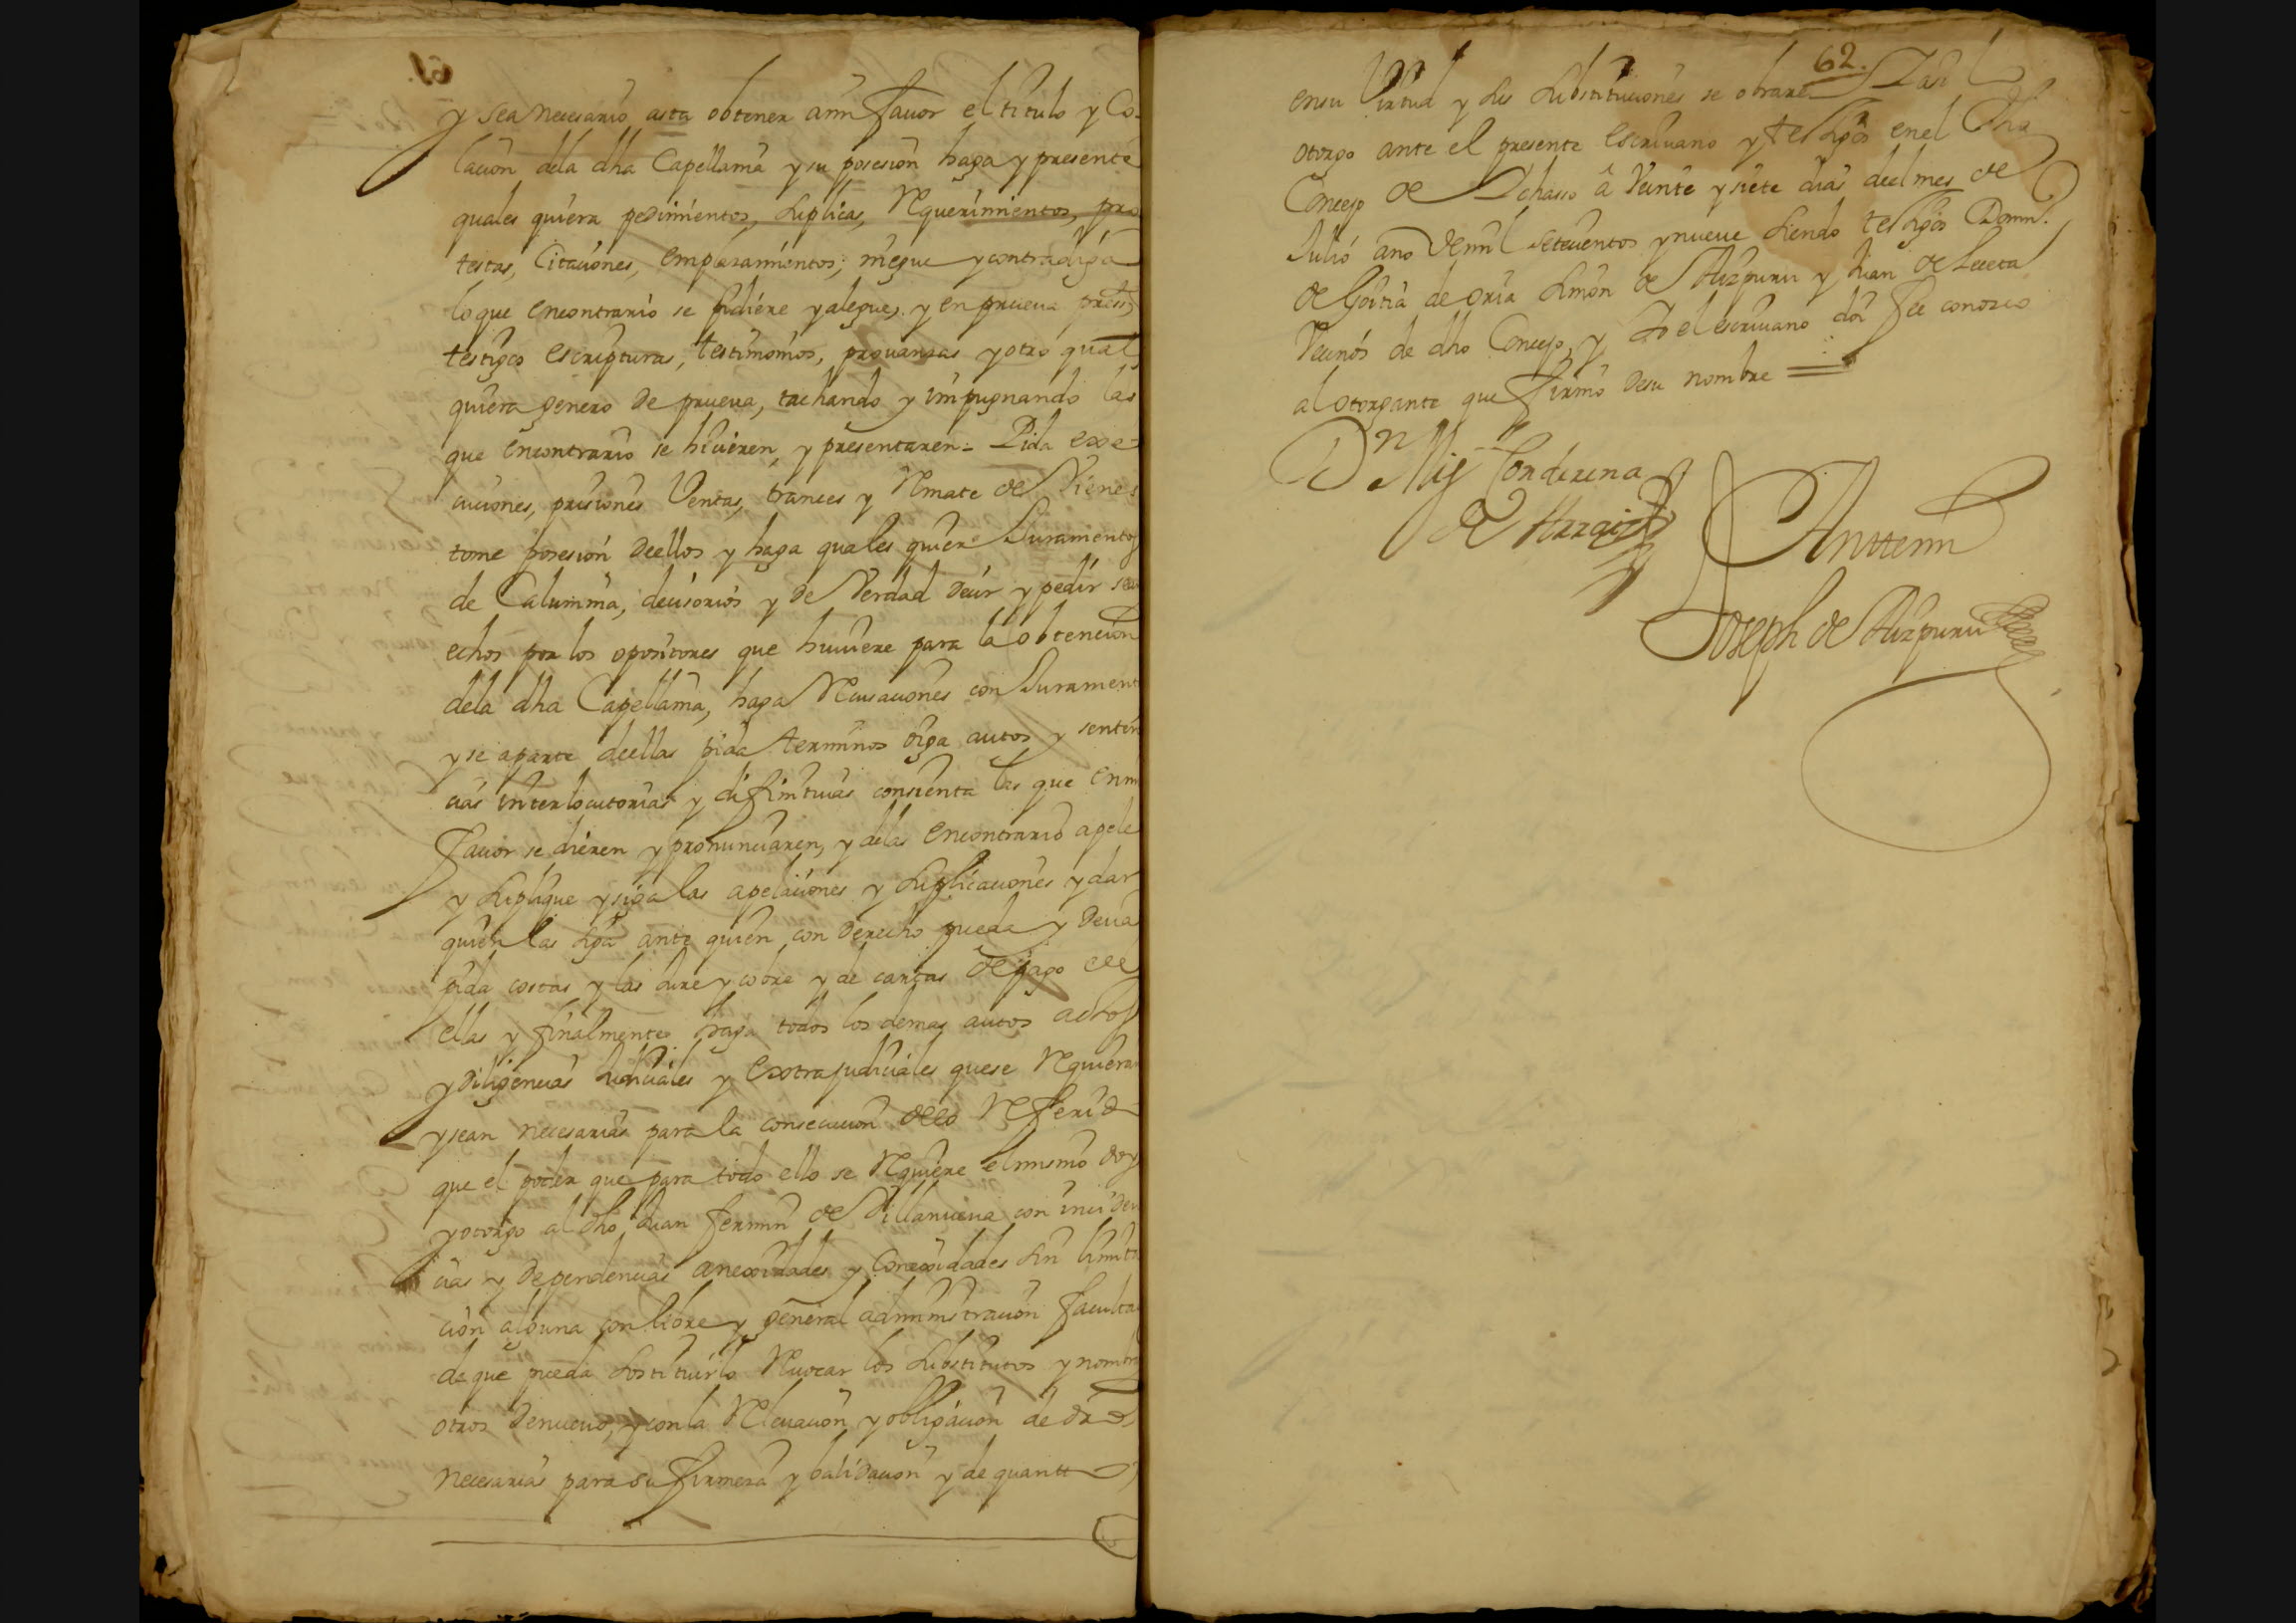 y sea necesario asta obtener ami favor el titulo y Co-
lacion dela dha Capellania y su posesion haga y presente
quales quiera pedimientos, suplicas, Requerimientos, pro
testas, Citaciones, emplazamientos, niegue y contradiga
lo que encontrario se pidiere y alegue, y en prueva press.te
testigos escripturas, testimonios, provanzas y otro qual
quiera genero de prueva, tachando y impugnando las
que encontrario se hicieren, y presentaren = Pida exe-
cuciones, prisiones Ventas, trances y Remate de Vienes
tome posesion deellos y haga quales quiera Juramentos
de Calumnia, decisorios y de Verdad decir y pedir sean
echos por los opositores que huviere para la obtencion
dela dha Capellania, haga Recusaciones con Jurament
y se aparte deellas pida terminos oiga autos y senten
cias interlocutorias y difinitivas consienta las que enmi
favor se dieren y pronunciaren, y delas encontrario apele
y suplique y siga las apelaciones y suplicaciones y dar
quien las siga ante quien con derecho pueda y deva
pida costas y las jure y cobre y de cartas de pago de
ellas y finalmente haga todos los demas autos actos
y diligencias judiciales y extrajudiciales quese Requiera
y sean necesarias para la consecucion deeo Referido
que el poder que para todo ello se Requiere el mismo doy
y otorgo al dho Juan fermin de Villanueva con inciden
cias y dependencias anexidades y Conexidades sin limita
cion alguna con libre y general administracion faculta
de que pueda sostituirlo Revocar los substitutos y nombr
otros denuevo, y con la Relevacion y obligacion de dro
necesarias para su firmeza y balidacion y de quanto
62.
ensu Virtud y sus substituciones se obrare Y asi
otorgo ante el presente escrivano y testigos enel dho
Concejo de Lchasso â Veinte y siete dias deel mes de
Julio año de mil setecientos y nueve siendo testigos Domin.
de Goitia de oria simon de Aizpuru y Juan de Leceta
Vecinos de dho Concejo, y Yo el escrivano doi fee conozco
al otorgante que firmó desu nombre =
Dn Mig Conderena
de Arraiza
Antemi
Joseph de Aizpuru